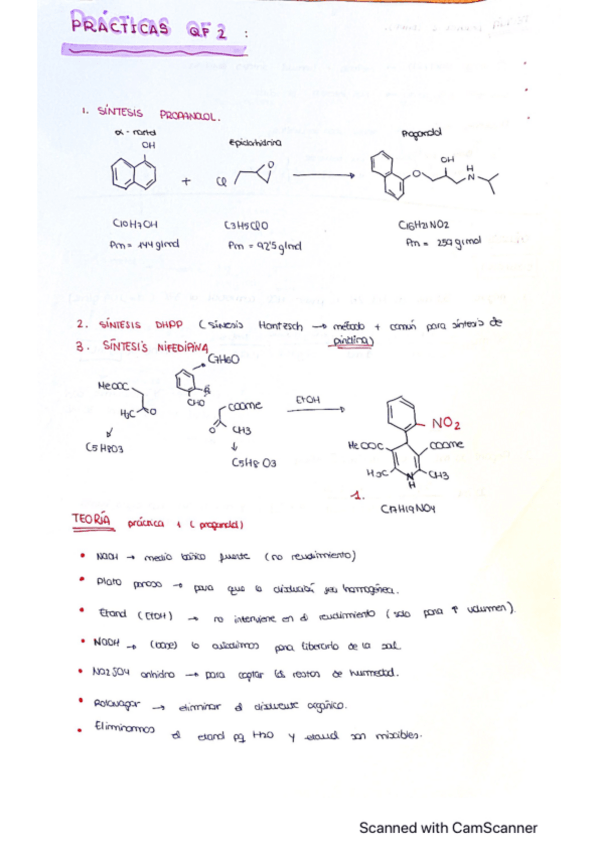 PRÁCTICAS QF 2 :
1. SÍNTESIS PROPANOLOL.
α - naftol
OH
Epiclorhidrina
O
Cl
+
Propanolol
OH
O
H
N
C10H7OH
C3H5ClO
C16H21NO2
Pm = 144 g/mol
Pm = 92'5 g/mol
Pm = 259 g/mol
2. SÍNTESIS DHPP ( Síntesis Hantzsch → método + común para síntesis de
piridina)
3. SÍNTESIS NIFEDIPINA
C7H6O
MeOOC
H3C
O
CHO
COOMe
O
CH3
EtOH
C5H8O3
C5H8O3
NO2
MeOOC
COOMe
H3C
N
H
CH3
1.
C17H19NO4
TEORÍA práctica 1 ( propanolol)
• NaOH → medio básico fuerte (no rendimiento)
• Plato poroso → para que la disolución sea homogénea.
• Etanol ( EtOH ) → no interviene en el rendimiento ( solo para ↑ volumen).
• NaOH → (base) lo añadimos para liberarlo de la sal.
• Na2SO4 anhidro → para captar los restos de humedad.
• Rotavapor → eliminar el disolvente orgánico.
• Eliminamos el etanol pq H2O y etanol son miscibles.
Scanned with CamScanner